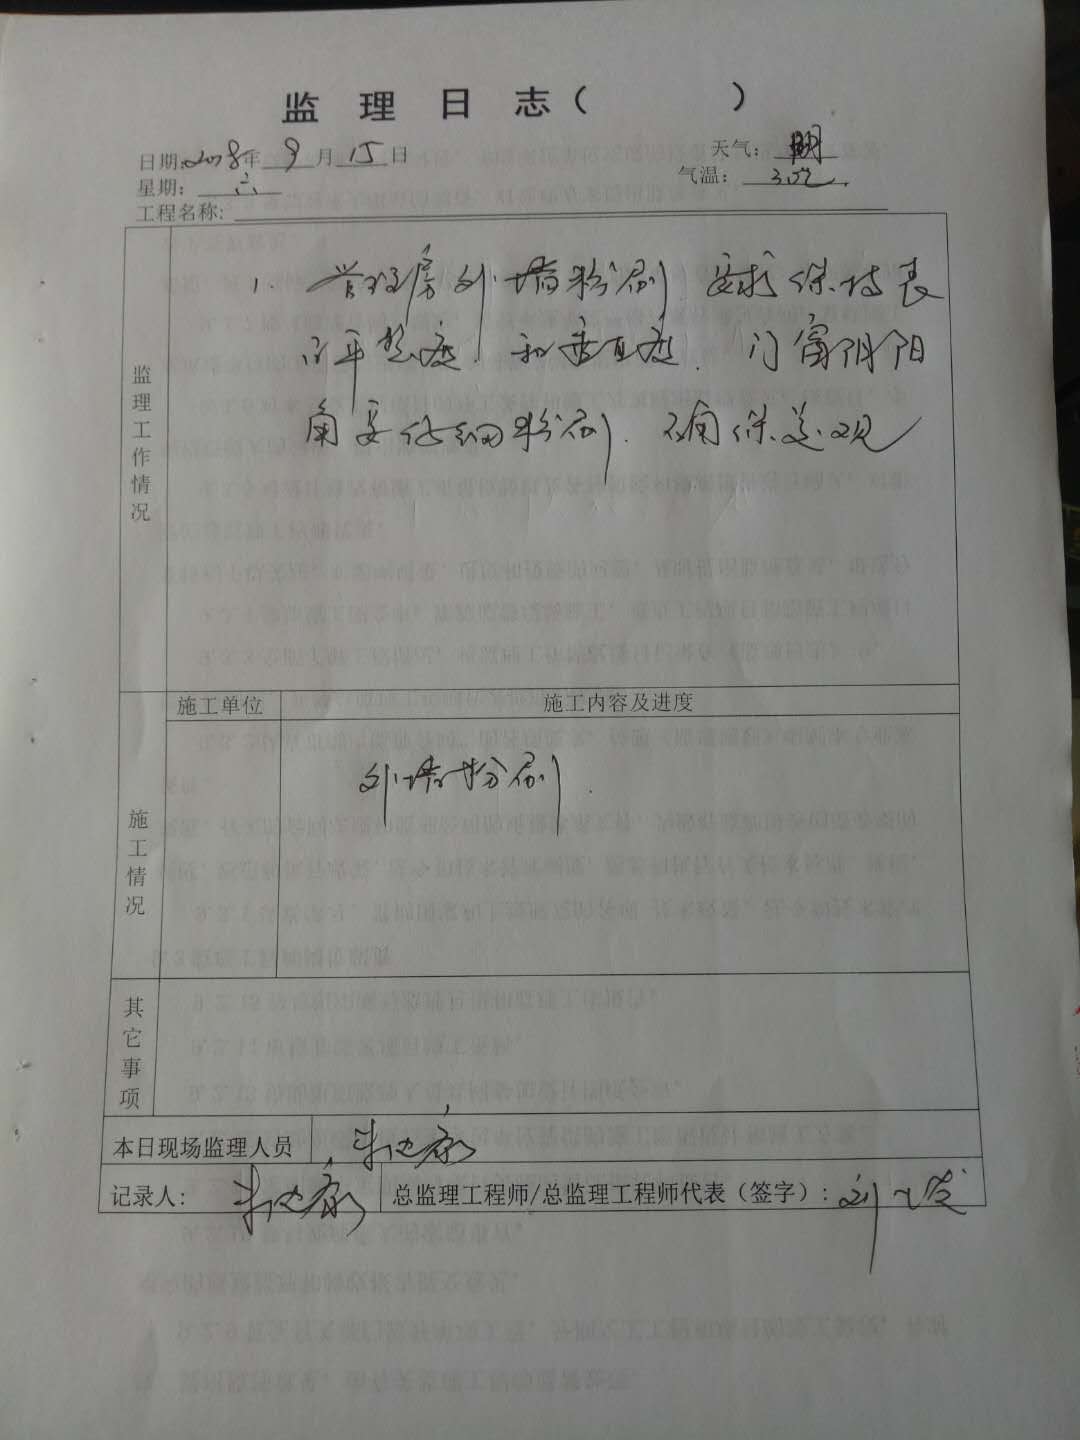 监 理 日 志（ ）
日期:2018年 9 月 15 日 天气：
星期： 六 气温： 30℃
工程名称:
监理工作情况
1. 管理房外墙粉刷 要求保持表
面平整度 和垂直度. 门窗阴阳
角要仔细粉刷. 确保美观
施工单位 施工内容及进度
施工情况
外墙粉刷.
其它事项
本日现场监理人员
记录人: 总监理工程师/总监理工程师代表（签字）: 刘